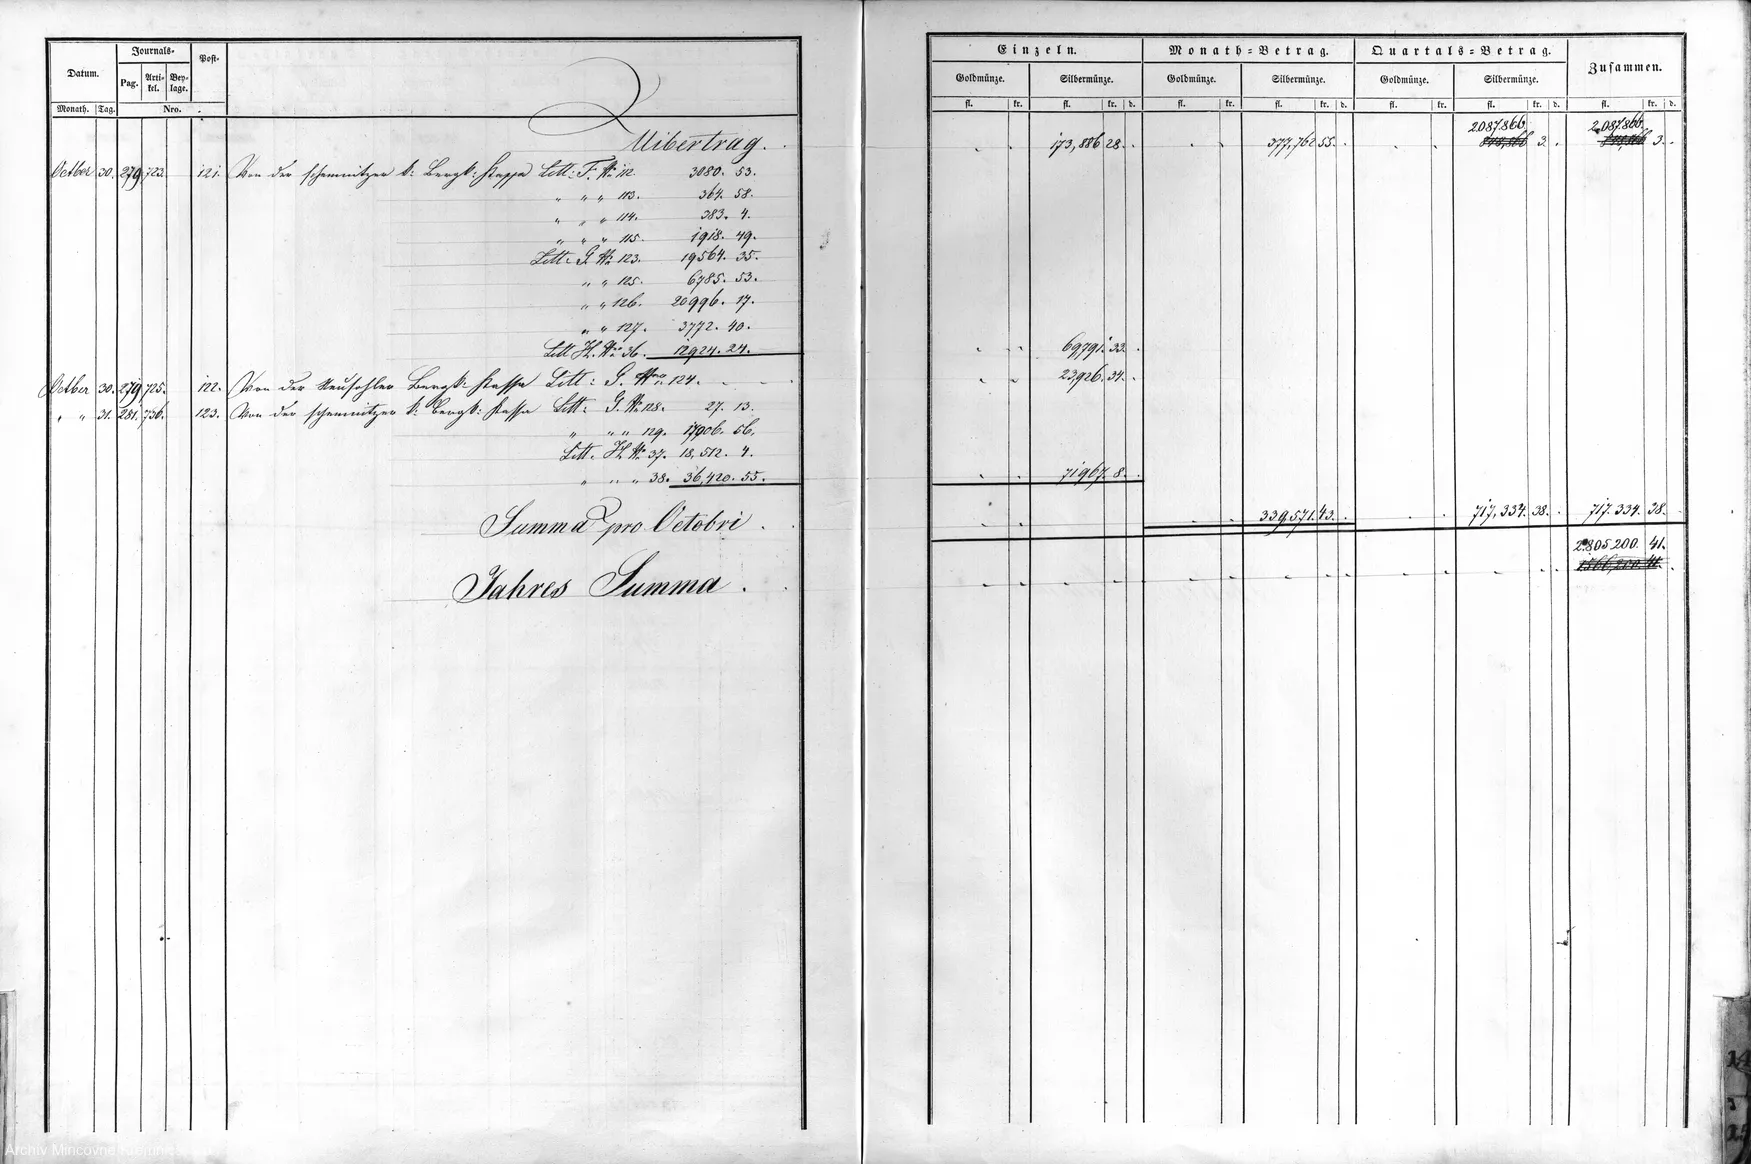 Datum.
Journals-
Post-
Pag. Arti-kel. Bey-lage.
Monath. Tag. Nro.
Einzeln. Monath-Betrag. Quartals-Betrag. Zusammen.
Goldmünze. Silbermünze. Goldmünze. Silbermünze. Goldmünze. Silbermünze.
fl. kr. fl. kr. d. fl. kr. fl. kr. d. fl. kr. fl. kr. d. fl. kr. d.
2087.866. 2,087.866.
Uibertrag. 173,886 28. 377,762 55. 3. 3.
October 30. 279 723. 121. Von der schemnitzer k: Bergk: Kassa Litt: F. No 112 3080. 53.
" " " 113. 364. 58.
" " " 114. 383. 4.
" " " 115. 1918. 49.
Litt: G. No 123. 19564. 35.
" " 125. 6785. 53.
" " 126. 20996. 17.
" " 127. 3772. 40.
Litt H. No 36. 12924. 24. 69,791. 33.
October 30. 279. 725. 122. Von der Neusohler Bergk: Kassa Litt: G. Nro 124. 23,926. 34.
" " 31. 281. 736. 123. Von der schemnitzer k: Bergk: Kassa Litt: G. No 128. 27. 13.
" " " 129. 17006. 56.
Litt. H. No 37. 18,512. 4.
" " " 38. 36,420. 55. 71967. 8.
Summa pro Octobri. 339,571. 43. 717,334. 38. 717.334. 38.
2.805 200. 41.
Jahres Summa. 1566,200. 41.
Archiv Mincovne Kremnica